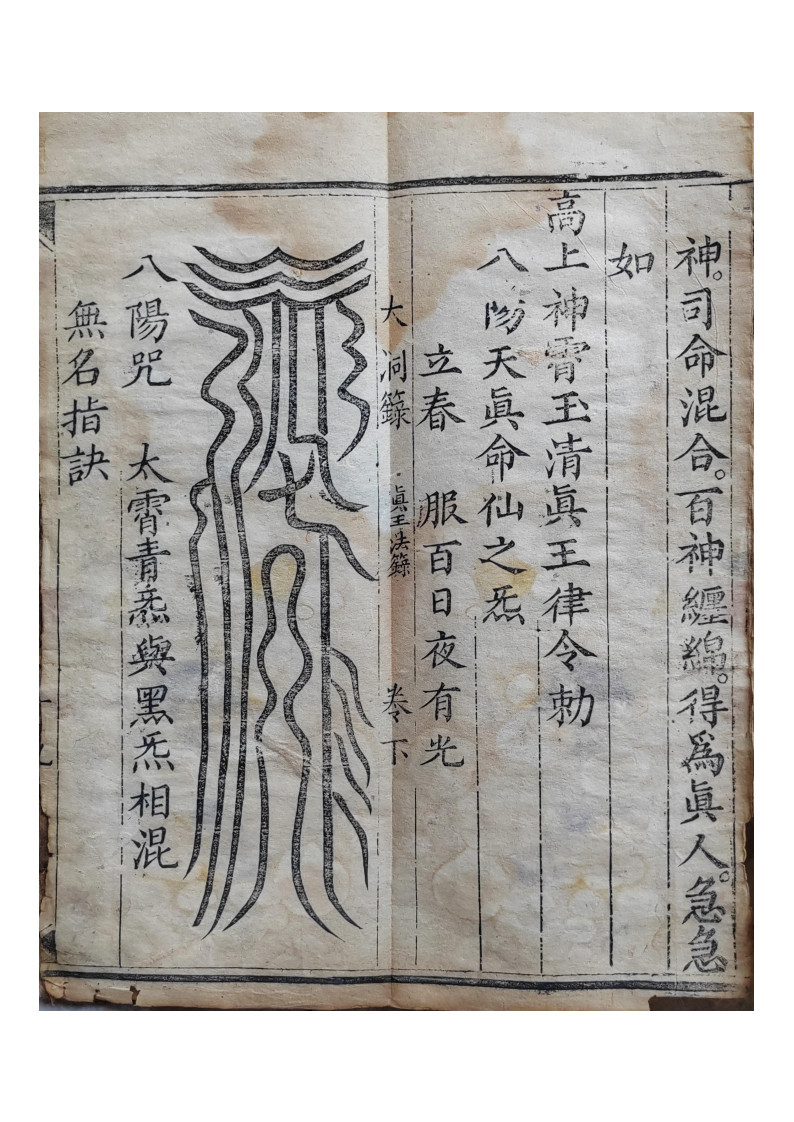 神。司命混合。百神纏綿。得爲眞人。急急
如
高上神霄玉清眞王律令勅
八陽天眞命仙之炁
立春　服百日夜有光
大洞籙　眞王法籙　卷下
八陽咒　太霄青炁與黑炁相混
無名指訣